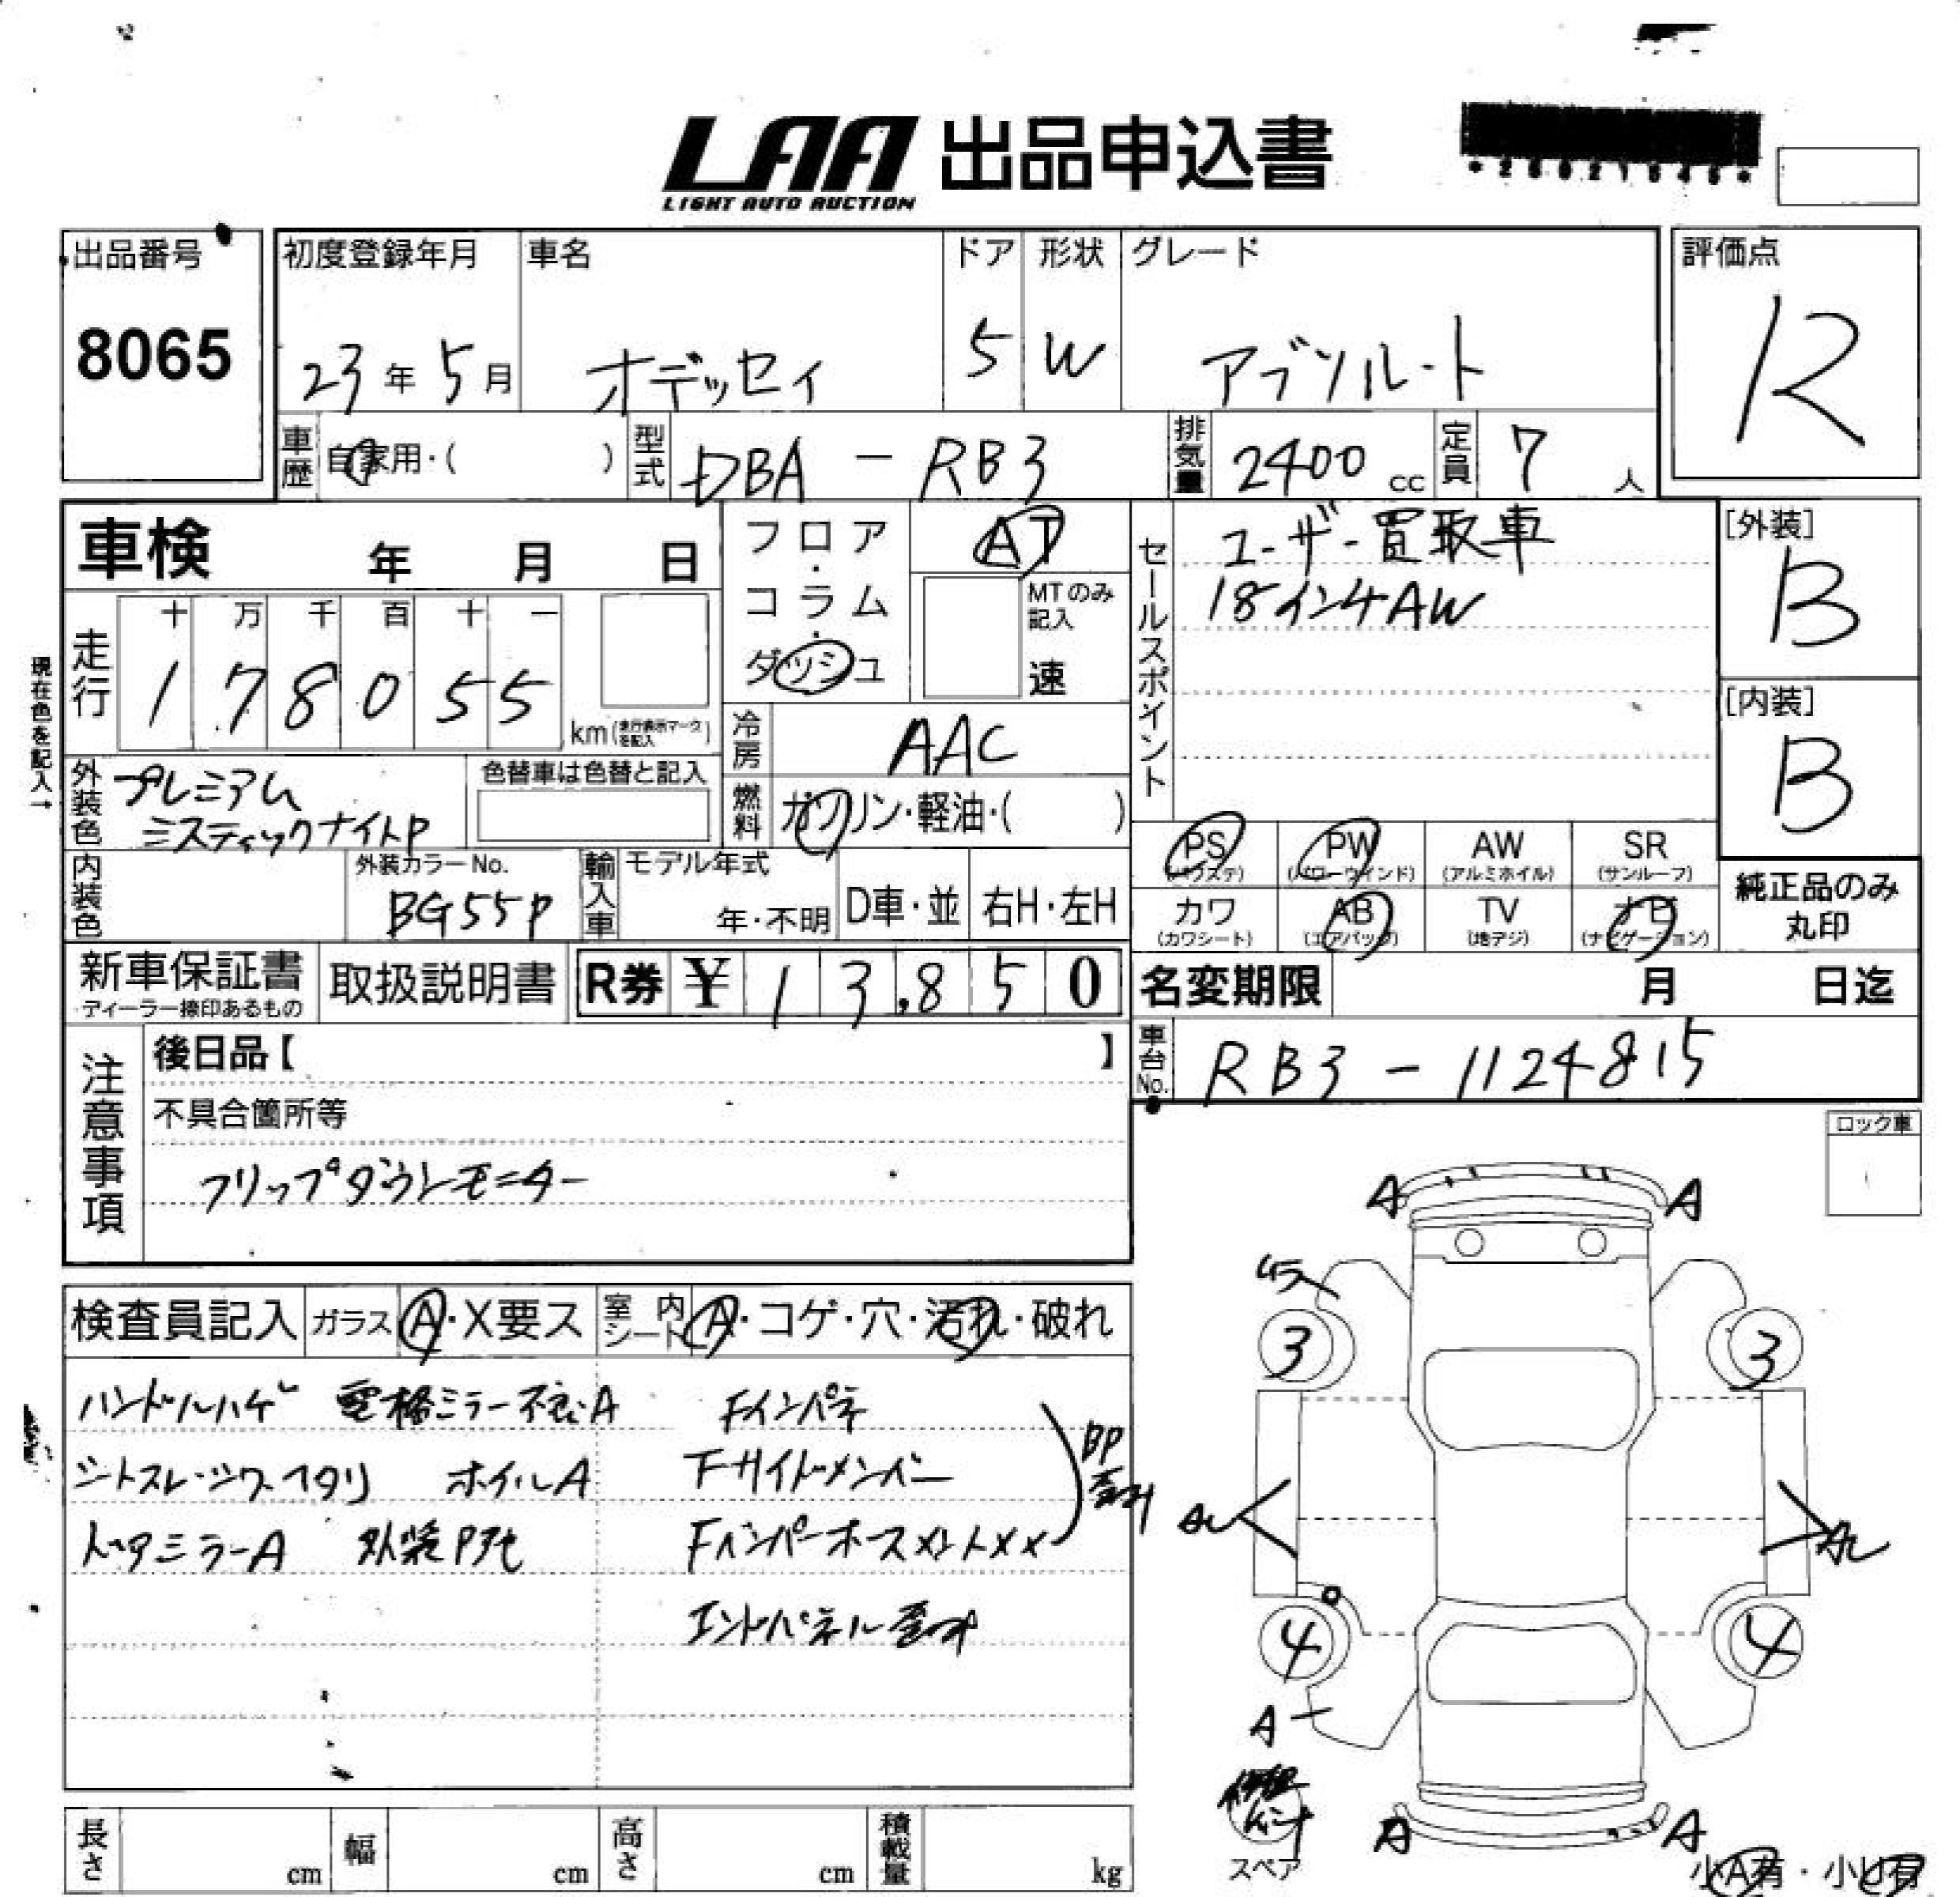 LAA 出品申込書
LIGHT AUTO AUCTION
出品番号
8065
初度登録年月
23年5月
車名
オデッセイ
ドア
5
形状
W
グレード
アブソルート
評価点
R
車歴
自家用・( )
型式
DBA - RB3
排気量
2400cc
定員
7人
車検 年 月 日
フロア・コラム・ダッシュ
AT
MTのみ記入
速
セールスポイント
ユーザー買取車
18インチAW
[外装]
B
[内装]
B
現在色を記入→
走行
十 万 千 百 十 一
1 7 8 0 5 5
km(走行表示マークを記入)
冷房
AAC
燃料
ガソリン・軽油・( )
外装色
プレミアム
ミスティックナイトP
色替車は色替と記入
PS (パワステ)
PW (パワーウインド)
AW (アルミホイル)
SR (サンルーフ)
カワ (カワシート)
AB (エアバッグ)
TV (地デジ)
ナビ (ナビゲーション)
純正品のみ
丸印
内装色
外装カラーNo.
BG55P
輸入車
モデル年式
年・不明
D車・並
右H・左H
新車保証書
ディーラー捺印あるもの
取扱説明書
R券 ¥ 13,850
名変期限 月 日迄
車台No.
RB3 - 1124815
注意事項
後日品【 】
不具合箇所等
フリップダウンモニター
ロック車
検査員記入
ガラス
A・X要ス
室内シート
A・コゲ・穴・汚れ・破れ
ハンドルハゲ 電格ミラー不良A
シートスレ・シワ・ヘタリ ホイルA
ドアミラーA 外装P
Fインパネ
Fサイドメンバー
Fバンパーホースメント××
BP
エンドパネル
A
A
3
3
4
4
A
A
A
修理キット
スペア
小A有・小U有
長さ cm
幅 cm
高さ cm
積載量 kg